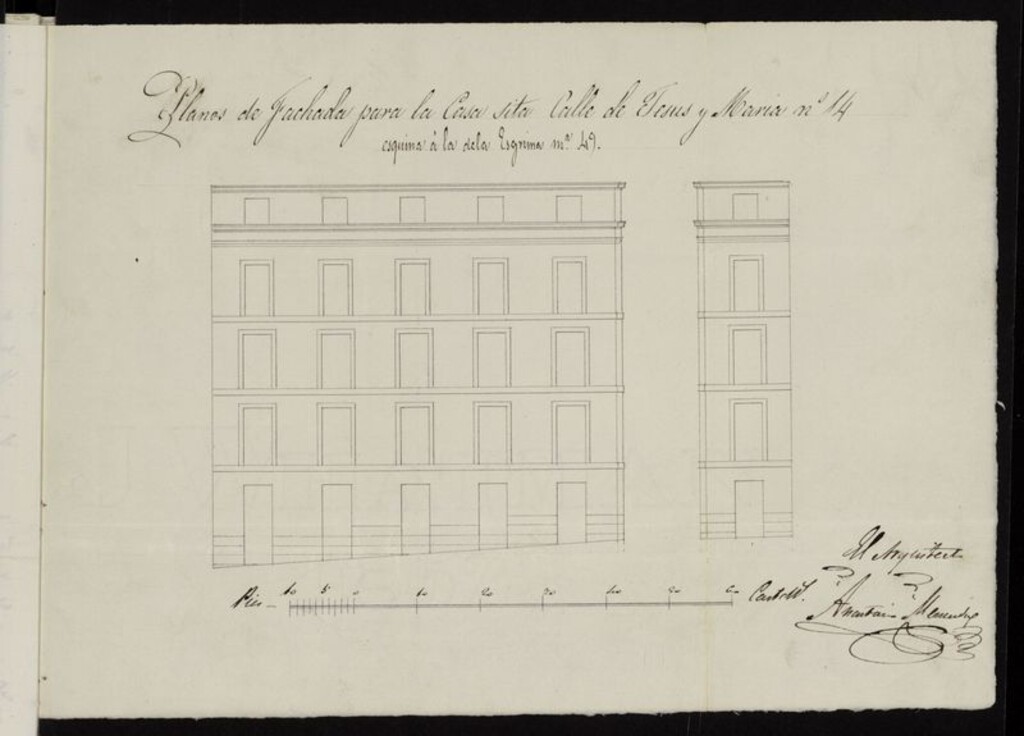 Planos de Fachada para la Casa sita Calle de Jesus y Maria nº 14
esquina á la de la Esgrima nº 49.
Pies 10 5 0 10 20 30 40 50 60 Castells.
El Arquitecto
Menendez